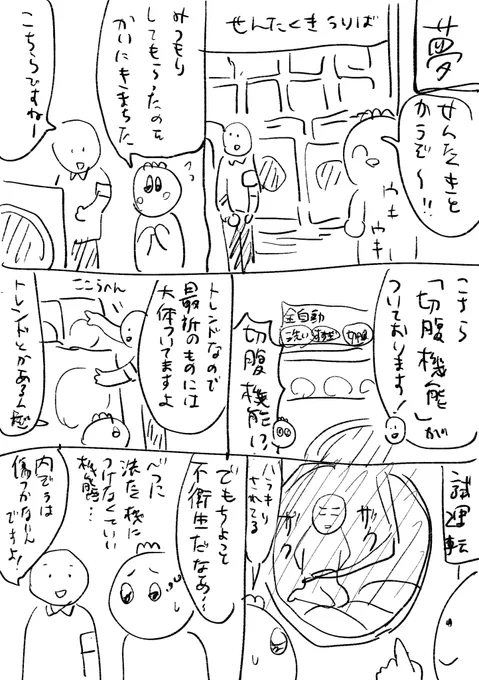 夢
せんたくきうりば
せんたくきを
かうぞ〜!!
ウキ
ウキ
みつもり
してもらったのを
かいにきました
こちらですねー
こちら
「切腹機能」が
ついております!
全自動
洗い
切腹
切腹機能!?
トレンドなので
最近のものには
大体ついてますよ
ここらへん
トレンドとかあるんだ
試運転
ザっ
ザっ
ハラキリ
されてる
でもちょって
不衛生だなあ〜
べつに
洗た機に
つけなくていい
機能…
内ぞうは
傷つかないん
ですよ!